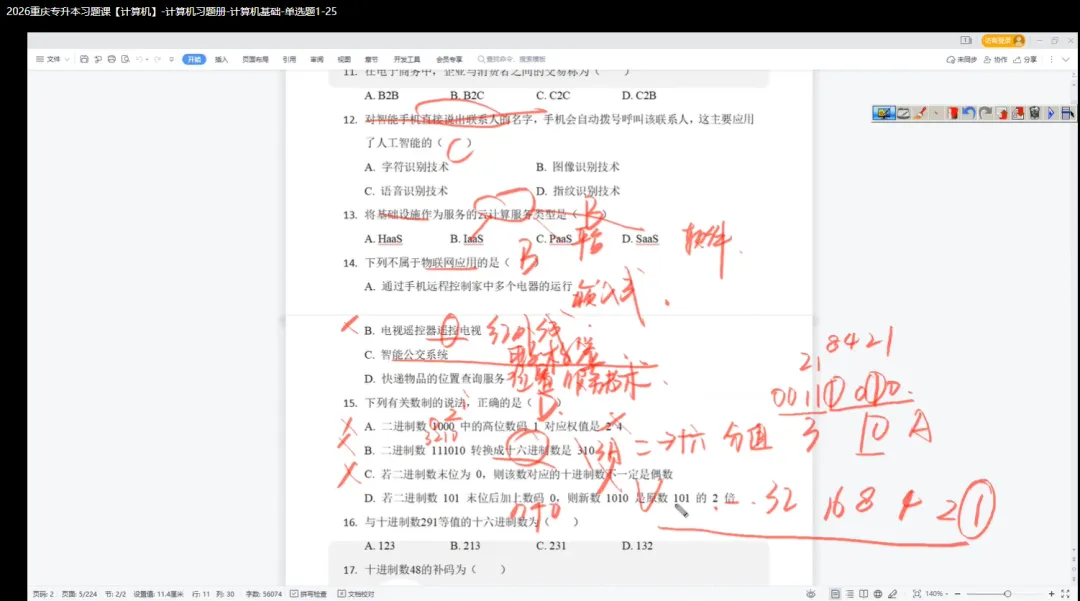 2026重庆专升本习题课【计算机】-计算机习题册-计算机基础-单选题1-25
文件 开始 插入 页面布局 引用 审阅 视图 章节 开发工具 会员专享 查找命令、搜索模板 未同步 协作 分享
11. 在电子商务中，企业与消费者之间的交易称为（ ）
A. B2B B. B2C C. C2C D. C2B
12. 对智能手机直接说出联系人的名字，手机会自动拨号呼叫该联系人，这主要应用
了人工智能的（ C ）
A. 字符识别技术 B. 图像识别技术
C. 语音识别技术 D. 指纹识别技术
13. 将基础设施作为服务的云计算服务类型是（ B ）
A. HaaS B. IaaS C. PaaS D. SaaS
平台 软件
14. 下列不属于物联网应用的是（ B ）
A. 通过手机远程控制家中多个电器的运行
嵌入式
B. 电视遥控器遥控电视 红外线
C. 智能公交系统
D. 快递物品的位置查询服务 位置服务技术
15. 下列有关数制的说法，正确的是（ D ）
A. 二进制数 1000 中的高位数码 1 对应权值是 2 4
3210
B. 二进制数 111010 转换成十六进制数是 310
C. 若二进制数末位为 0，则该数对应的十进制数不一定是偶数
D. 若二进制数 101 末位后加上数码 0，则新数 1010 是原数 101 的 2 倍
8421
21
0011 1010
3 10 A
二→十六 分组
32 16 8 4 2 1
16. 与十进制数291等值的十六进制数为（ ）
A. 123 B. 213 C. 231 D. 132
17. 十进制数48的补码为（ ）
页码: 2 页面: 5/224 节: 2/2 设置值: 11.4厘米 行: 11 列: 30 字数: 56074 拼写检查 文档校对 140%